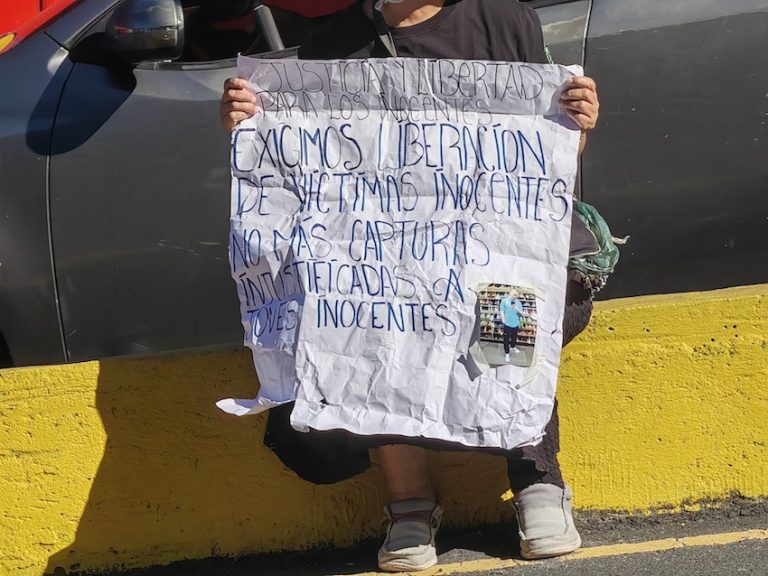 JUSTICIA Y LIBERTAD
PARA LOS INOCENTES
EXIGIMOS LIBERACIÓN
DE VÍCTIMAS INOCENTES
NO MÁS CAPTURAS
INJUSTIFICADAS, EN
JOVES INOCENTES